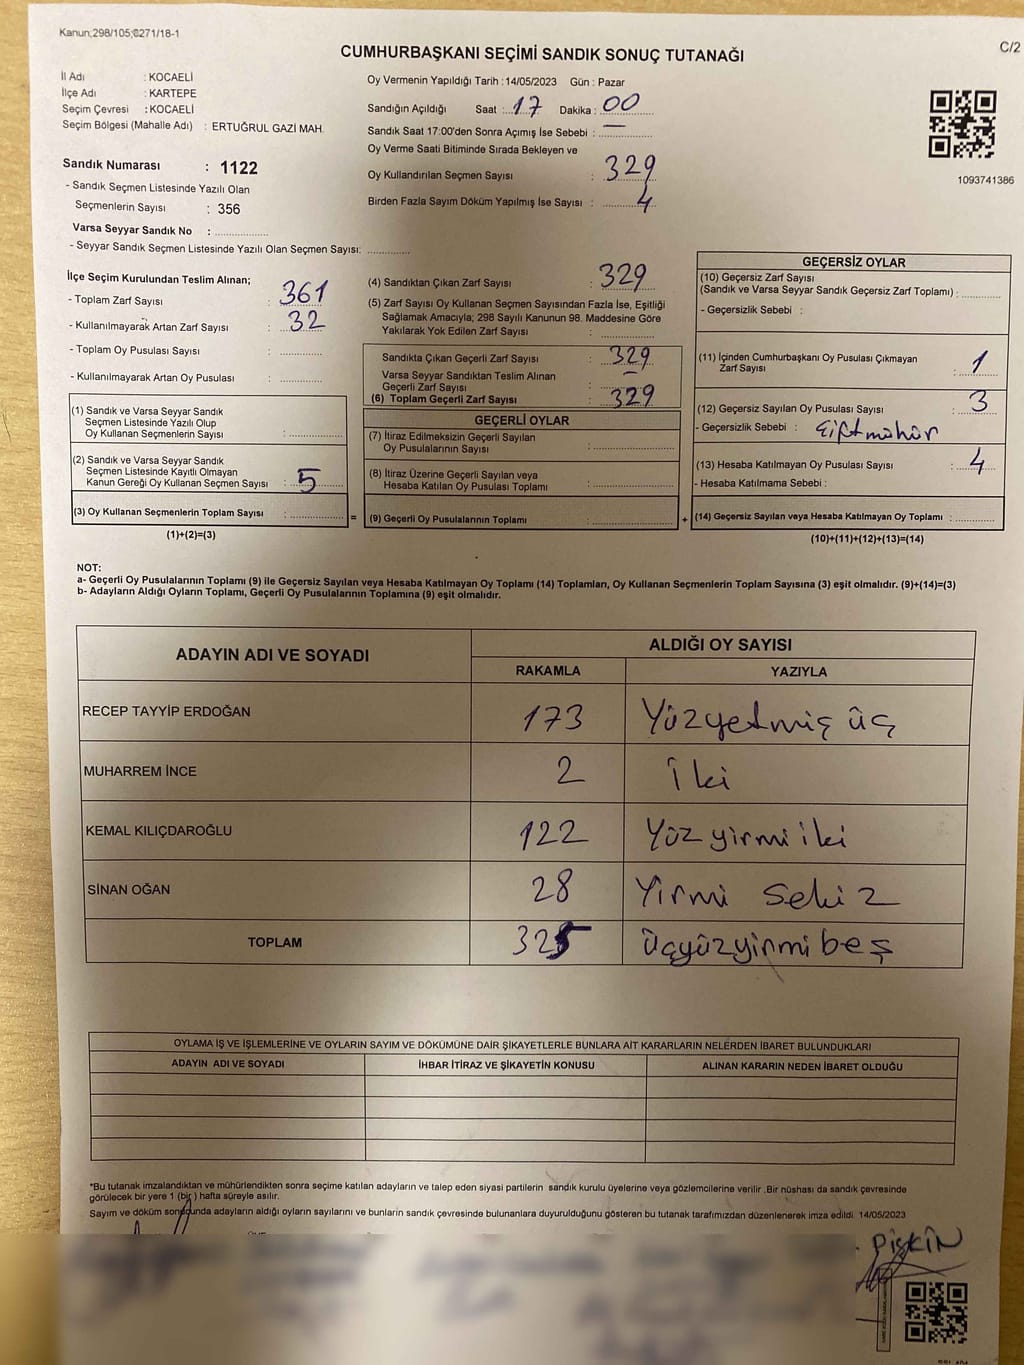 Kanun;298/105;271/18-1
C/2
CUMHURBAŞKANI SEÇİMİ SANDIK SONUÇ TUTANAĞI
İl Adı : KOCAELİ
İlçe Adı : KARTEPE
Seçim Çevresi : KOCAELİ
Seçim Bölgesi (Mahalle Adı) : ERTUĞRUL GAZİ MAH.
Sandık Numarası : 1122
- Sandık Seçmen Listesinde Yazılı Olan
Seçmenlerin Sayısı : 356
Varsa Seyyar Sandık No :
- Seyyar Sandık Seçmen Listesinde Yazılı Olan Seçmen Sayısı:
Oy Vermenin Yapıldığı Tarih : 14/05/2023 Gün : Pazar
Sandığın Açıldığı Saat : 17 Dakika : 00
Sandık Saat 17:00'den Sonra Açımış İse Sebebi : —
Oy Verme Saati Bitiminde Sırada Bekleyen ve
Oy Kullandırılan Seçmen Sayısı : 329
Birden Fazla Sayım Döküm Yapılmış İse Sayısı : 4
1093741386
İlçe Seçim Kurulundan Teslim Alınan;
- Toplam Zarf Sayısı : 361
- Kullanılmayarak Artan Zarf Sayısı : 32
- Toplam Oy Pusulası Sayısı :
- Kullanılmayarak Artan Oy Pusulası :
(1) Sandık ve Varsa Seyyar Sandık
Seçmen Listesinde Yazılı Olup
Oy Kullanan Seçmenlerin Sayısı :
(2) Sandık ve Varsa Seyyar Sandık
Seçmen Listesinde Kayıtlı Olmayan
Kanun Gereği Oy Kullanan Seçmen Sayısı : 5
(3) Oy Kullanan Seçmenlerin Toplam Sayısı : =
(1)+(2)=(3)
(4) Sandıktan Çıkan Zarf Sayısı : 329
(5) Zarf Sayısı Oy Kullanan Seçmen Sayısından Fazla İse, Eşitliği
Sağlamak Amacıyla; 298 Sayılı Kanunun 98. Maddesine Göre
Yakılarak Yok Edilen Zarf Sayısı :
Sandıkta Çıkan Geçerli Zarf Sayısı : 329
Varsa Seyyar Sandıktan Teslim Alınan
Geçerli Zarf Sayısı : —
(6) Toplam Geçerli Zarf Sayısı : 329
GEÇERLİ OYLAR
(7) İtiraz Edilmeksizin Geçerli Sayılan
Oy Pusulalarının Sayısı :
(8) İtiraz Üzerine Geçerli Sayılan veya
Hesaba Katılan Oy Pusulası Toplamı :
(9) Geçerli Oy Pusulalarının Toplamı : +
GEÇERSİZ OYLAR
(10) Geçersiz Zarf Sayısı
(Sandık ve Varsa Seyyar Sandık Geçersiz Zarf Toplamı) :
- Geçersizlik Sebebi :
(11) İçinden Cumhurbaşkanı Oy Pusulası Çıkmayan
Zarf Sayısı : 1
(12) Geçersiz Sayılan Oy Pusulası Sayısı : 3
- Geçersizlik Sebebi : Çift mühür
(13) Hesaba Katılmayan Oy Pusulası Sayısı : 4
- Hesaba Katılmama Sebebi :
(14) Geçersiz Sayılan veya Hesaba Katılmayan Oy Toplamı :
(10)+(11)+(12)+(13)=(14)
NOT:
a- Geçerli Oy Pusulalarının Toplamı (9) ile Geçersiz Sayılan veya Hesaba Katılmayan Oy Toplamı (14) Toplamları, Oy Kullanan Seçmenlerin Toplam Sayısına (3) eşit olmalıdır. (9)+(14)=(3)
b- Adayların Aldığı Oyların Toplamı, Geçerli Oy Pusulalarının Toplamına (9) eşit olmalıdır.
ADAYIN ADI VE SOYADI ALDIĞI OY SAYISI
RAKAMLA YAZIYLA
RECEP TAYYİP ERDOĞAN 173 Yüzyetmiş üç
MUHARREM İNCE 2 İki
KEMAL KILIÇDAROĞLU 122 Yüz yirmi iki
SİNAN OĞAN 28 Yirmi Sekiz
TOPLAM 325 üçyüzyirmi beş
OYLAMA İŞ VE İŞLEMLERİNE VE OYLARIN SAYIM VE DÖKÜMÜNE DAİR ŞİKAYETLERLE BUNLARA AİT KARARLARIN NELERDEN İBARET BULUNDUKLARI
ADAYIN ADI VE SOYADI İHBAR İTİRAZ VE ŞİKAYETİN KONUSU ALINAN KARARIN NEDEN İBARET OLDUĞU
*Bu tutanak imzalandıktan ve mühürlendikten sonra seçime katılan adayların ve talep eden siyasi partilerin sandık kurulu üyelerine veya gözlemcilerine verilir .Bir nüshası da sandık çevresinde
görülecek bir yere 1 (bir ) hafta süreyle asılır.
Sayım ve döküm sonucunda adayların aldığı oyların sayılarını ve bunların sandık çevresinde bulunanlara duyurulduğunu gösteren bu tutanak tarafımızdan düzenlenerek imza edildi 14/05/2023
PİŞKİN